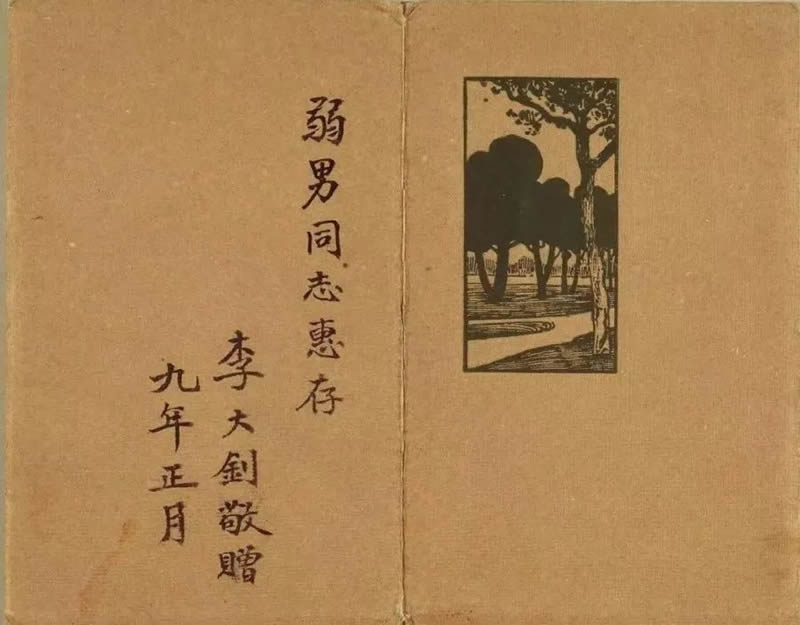 弱男同志惠存
李大釗敬贈
九年正月